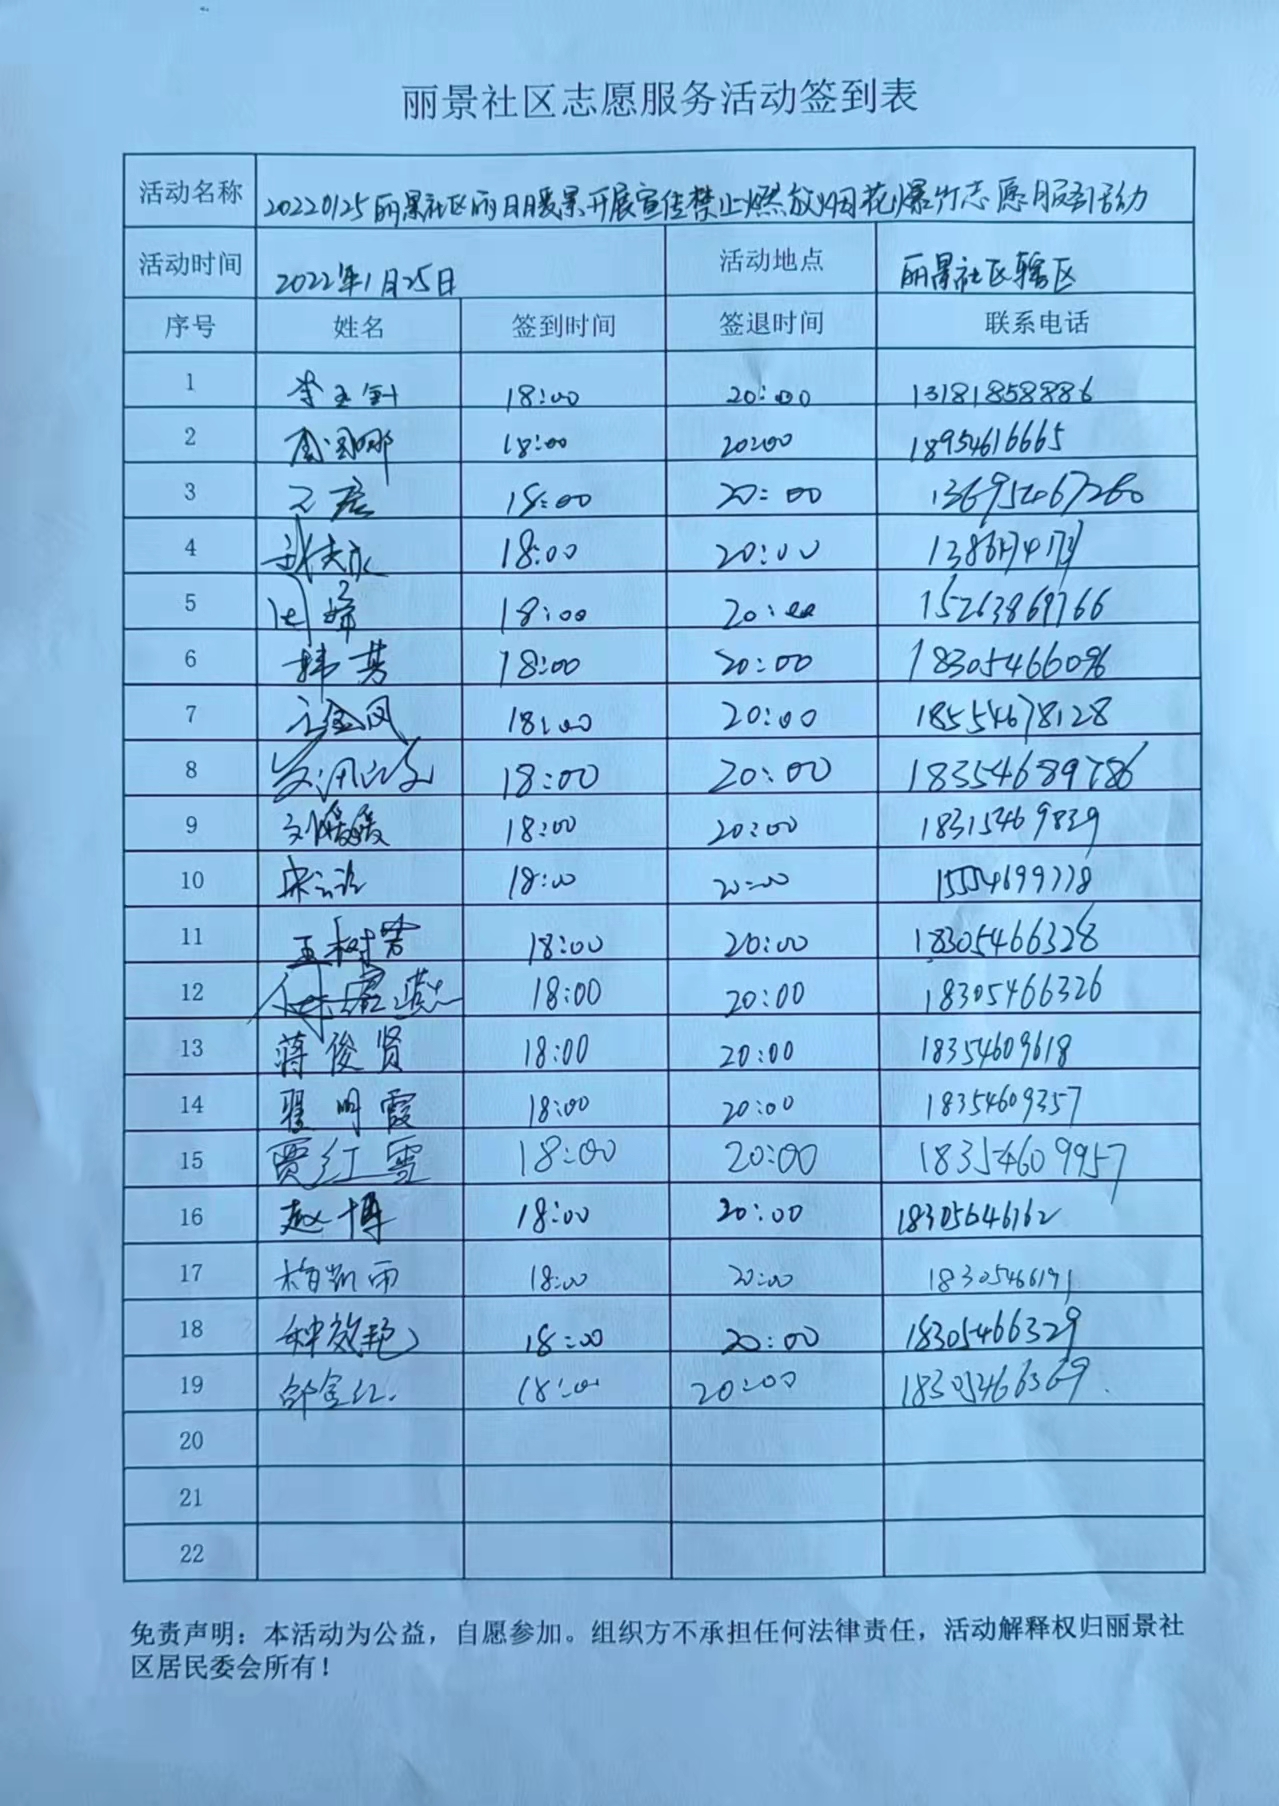 丽景社区志愿服务活动签到表
活动名称 20220125丽景社区丽日暖景开展宣传禁止燃放烟花爆竹志愿服务活动
活动时间 2022年1月25日 活动地点 丽景社区辖区
序号 姓名 签到时间 签退时间 联系电话
1 18:00 20:00 13181858886
2 18:00 20:00 18954616665
3 18:00 20:00
4 18:00 20:00
5 18:00 20:00 15263869766
6 韩芳 18:00 20:00 18305466096
7 18:00 20:00 18554678128
8 18:00 20:00 18354689786
9 刘媛媛 18:00 20:00 18315469839
10 18:00 20:00 15554699778
11 王树芳 18:00 20:00 18305466328
12 18:00 20:00 18305466326
13 蒋俊贤 18:00 20:00 18354609618
14 翟明霞 18:00 20:00 18354609357
15 贾红雪 18:00 20:00 18354609957
16 赵博 18:00 20:00 18305646162
17 梅凯雨 18:00 20:00 18305466191
18 种效艳 18:00 20:00 18305466329
19 邵金红 18:00 20:00 18305466369
20
21
22
免责声明：本活动为公益，自愿参加。组织方不承担任何法律责任，活动解释权归丽景社
区居民委会所有！